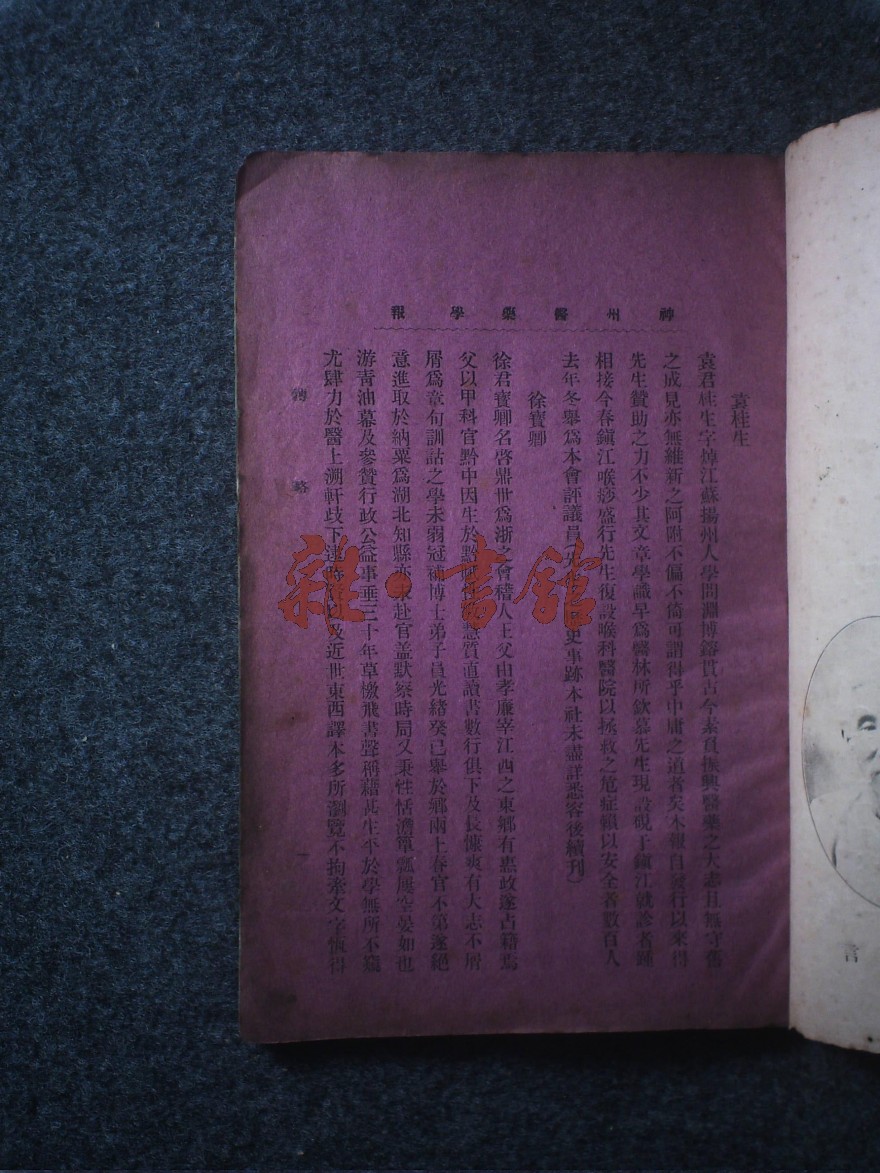 神州醫藥學報
袁桂生
袁君桂生字焯江蘇揚州人學問淵博鎔貫古今素負振興醫藥之大志且無守舊
之成見亦無維新之阿附不偏不倚可謂得乎中庸之道者矣本報自發行以來得
先生贊助之力不少其文章學識早為醫林所欽慕先生現設硯于鎮江就診者踵
相接今春鎮江喉痧盛行先生復設喉科醫院以拯救之危症賴以安全者數百人
去年冬舉為本會評議員史事跡本社未盡詳悉容後續刊）
徐寶卿
徐君寶卿名啓鼎世為浙之會稽人王父由孝廉宰江西之東鄉有惠政遂占籍焉
父以甲科官黔中因生於黔質直讀書數行俱下及長慷爽有大志不屑
屑為章句訓詁之學未弱冠補博士弟子員光緒癸巳舉於鄉兩上春官不第遂絕
意進取於納粟為湖北知縣亦未赴官蓋默察時局又秉性恬澹簞瓢屢空晏如也
游青油幕及參贊行政公益事垂三十年草檄飛書聲稱藉甚生平於學無所不窺
尤肆力於醫上溯軒歧下逮及近世東西譯本多所瀏覽不拘牽文字恆得
傳略
一
言
雜·書館